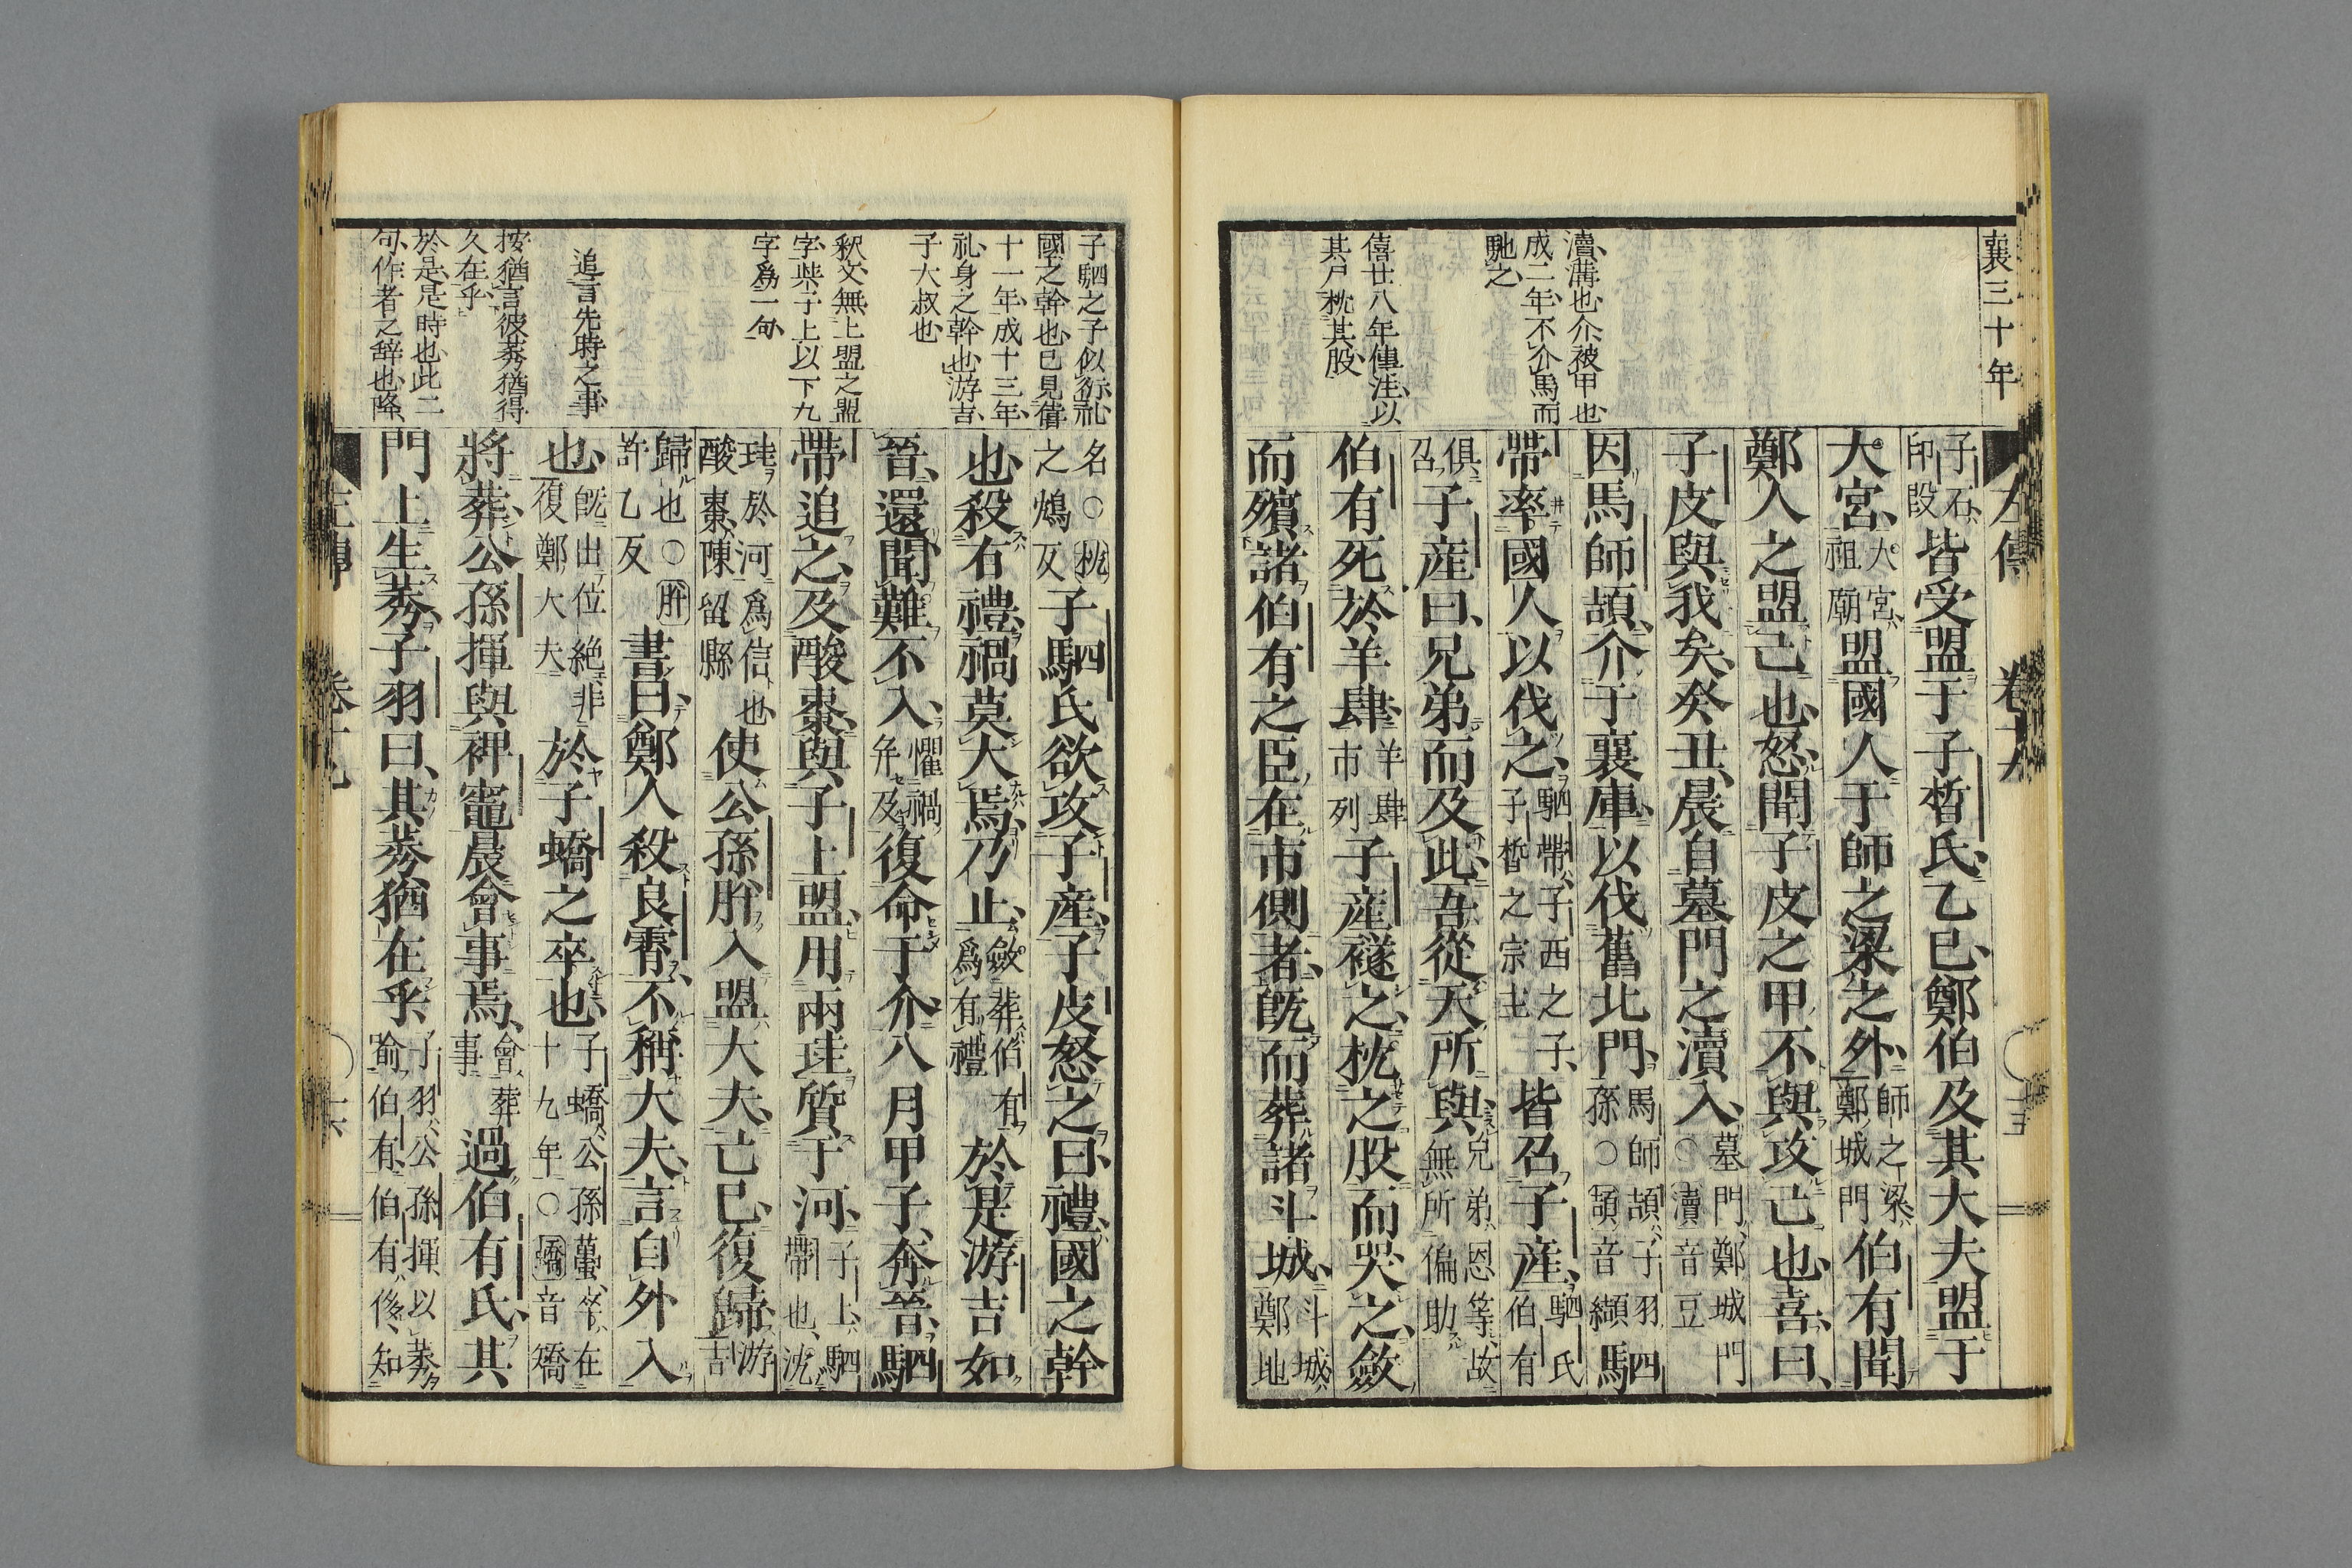 襄三十年
瀆、溝也、介、被甲也、
成二年、不介馬而
馳之、
僖廿八年傳注、以
其尸枕其股、
左傳 卷十九
子石、印段皆受盟于子皙氏、乙巳、鄭伯及其大夫盟于
大宮、大宮、祖廟盟國人于師之梁之外、師之梁、鄭城門伯有聞
鄭人之盟己也、怒、聞子皮之甲不與攻己也、喜曰、
子皮與我矣、癸丑、晨自墓門之瀆入、墓門、鄭城門○瀆音豆
因馬師頡、介于襄庫、以伐舊北門、馬師頡、子羽孫○頡音纈駟
帶率國人以伐之、駟帶、子西之子、子皙之宗主皆召子産、駟氏伯有
俱召子産曰、兄弟而及此、吾從天所與、兄弟恩等、故無所偏助
伯有死於羊肆、羊肆市列子産襚之、枕之股而哭之、斂
而殯諸伯有之臣在市側者、既而葬諸斗城、斗城、鄭地
子駟之子似衍祉
國之幹也、已見僖
十一年、成十三年、
礼、身之幹也、游吉、
子大叔也
釈文無上盟之盟
字、柴子上以下九
字爲一句、
追言先時之事
按、猶言彼莠猶得
久在乎、
於是、是時也、此二
句、作者之辞也、降、
名○枕之鴆反子駟氏欲攻子産、子皮怒之曰、禮、國之幹
也、殺有禮、禍莫大焉、乃止、斂葬伯有爲有禮於是游吉如
晉、還聞難不入、懼禍幷及復命于介、八月甲子、奔晉、駟
帶追之、及酸棗、與子上盟、用兩珪質于河、子上、駟帶也、沈
珪於河爲信也、酸棗、陳留縣使公孫肸入盟大夫、己巳、復歸、游吉
歸也○肸許乙反書曰、鄭人殺良霄、不稱大夫、言自外入
也、既出位絶、非復鄭大夫於子蟜之卒也、子蟜、公孫蠆、卒在十九年○蟜音矯
將葬、公孫揮與裨竈晨會事焉、會葬事過伯有氏、其
門上生莠、子羽曰、其莠猶在乎、子羽、公孫揮、以莠喻伯有、伯有侈、知
左傳 卷十九 十六